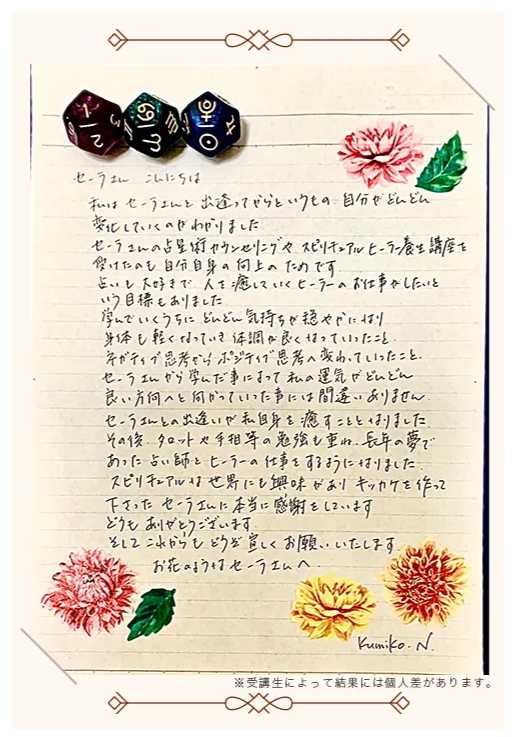 セーラさん こんにちは
私は セーラさんと 出逢ってからというもの 自分が どんどん
変化していくのがわかりました
セーラさんの占星術カウンセリングや スピリチュアルヒーラー養生講座を
受けたのも 自分自身の向上のためです
占いも大好きで 人を癒していくヒーラーのお仕事がしたいと
いう目標もありました
学んでいくうちに どんどん気持ちが穏やかになり
身体も軽くなっていき 体調が良くなっていったこと
ネガティブ思考からポジティブ思考へ変わっていったこと、
セーラさんから学んだ事によって 私の運気がどんどん
良い方向へと向かっていった事には間違いありません
セーラさんとの出逢いが私自身を癒すこととなりました
その後、タロットや手相等の勉強も重ね、長年の夢で
あった占い師とヒーラーの仕事をするようになりました
スピリチュアルな世界にも興味があり キッカケを作って
下さった セーラさんに本当に感謝をしています
どうも ありがとうございます
そして これからも どうぞ宜しくお願いいたします
お花のようなセーラさんへ
Kumiko. N.
※受講生によって結果には個人差があります。